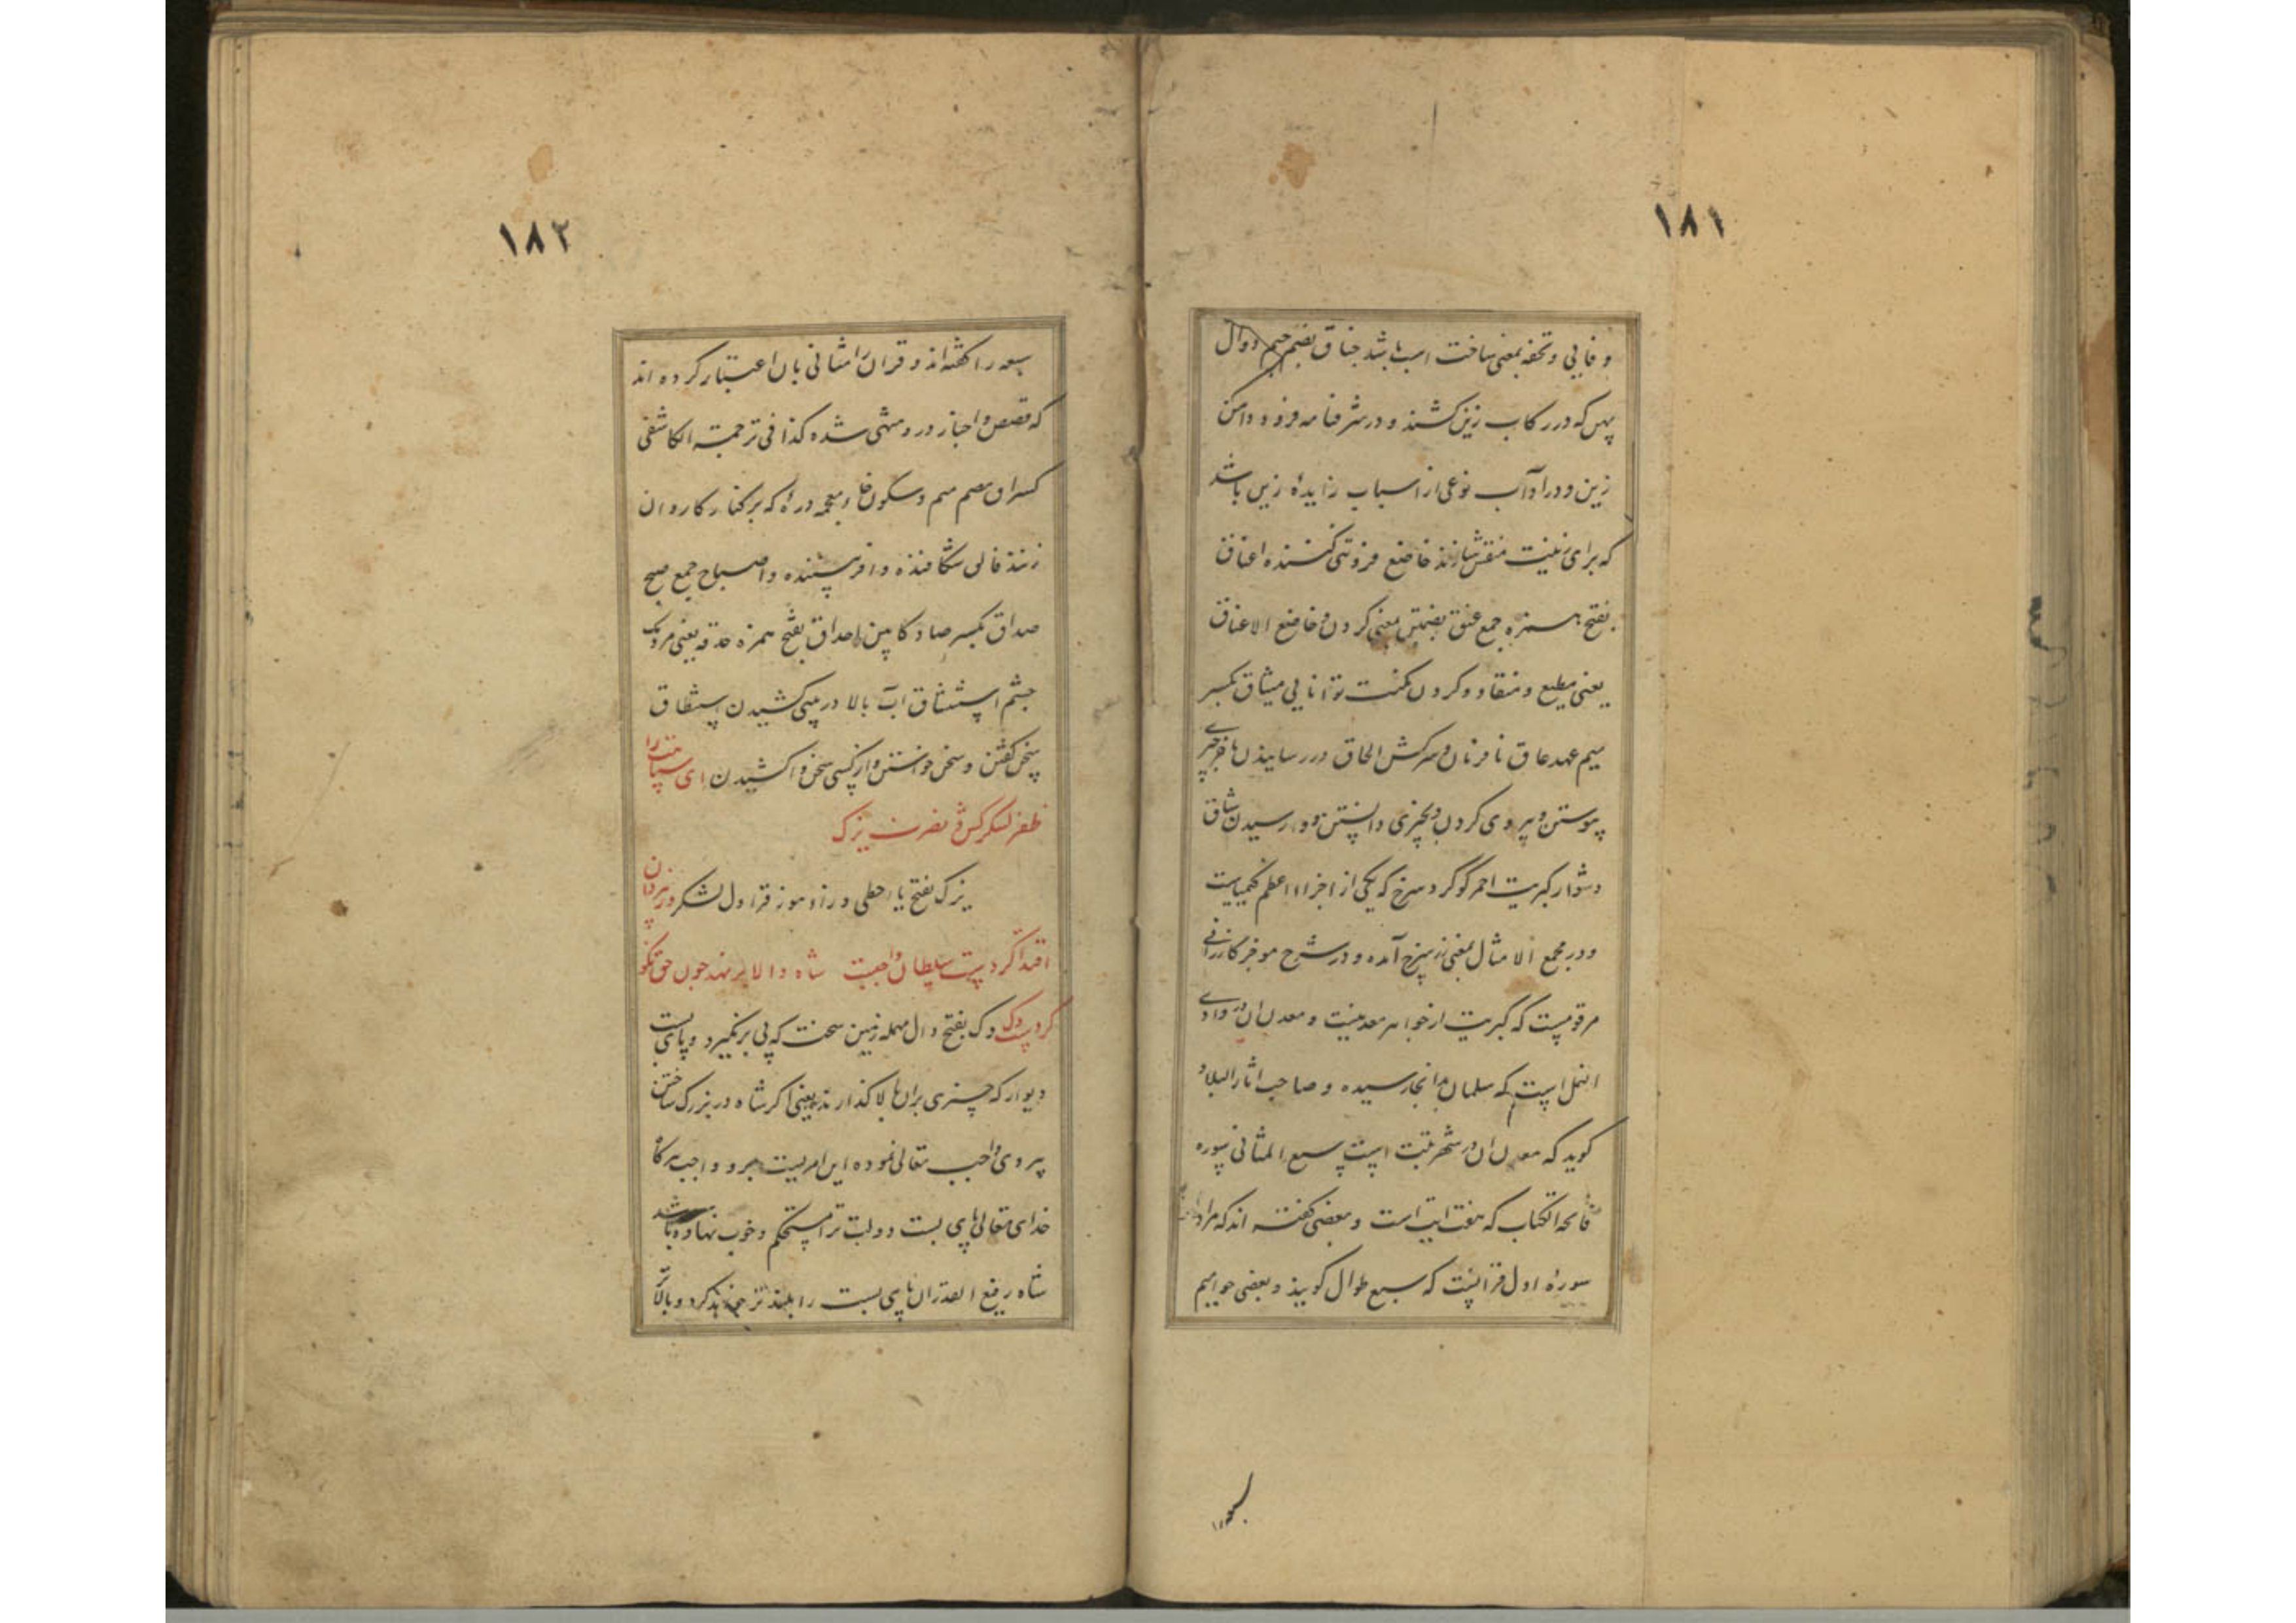 ۱۸۱
و فایی و تحفه بمعنی ساخت اسب باشد جناق بضم جیم دوال
پهن که در رکاب زین کشند و در شرفنامه فرود دامن
زین و در اداب نوعی از اسباب زایده زین باشد
که برای زینت منقش سازند خاضع فروتنی کننده اعناق
بفتح همزه جمع عنق بضمتین بمعنی کردن و خاضع الاعناق
یعنی مطیع و منقاد و کردن مکنت توانایی میثاق بکسر
میم عهد عاق نافرمان و سرکش الحاق در رسانیدن
پیوستن و پیروی کردن و بچیزی دانستن و در رسیدن شاق
دشوار کبریت احمر کوکرد سرخ که یکی از اجزاء اعظم کیمیاست
و در مجمع الامثال بمعنی زر سرخ آمده و در شرح موجز کازرانی
مرقومست که کبریت از جواهر معدنیست و معدن ان در وادی
النمل است که سلمان بدانجا رسیده و صاحب اثار البلاد
کوید که معدن ان در شهر تبت است سبع المثانی سوره
فاتحه الکتاب که هفت ایت است و بعضی کفته اند که مراد
سوره اول قرانست که سبع طوال کویند و بعضی حوامیم
۱۸۲
سبعه را کفته اند و قران را مثانی بان اعتبار کرده اند
که قصص و اخبار در و مثنی شده کذا فی ترجمة الکاشفی
بضم میم و سکون خاء معجمه دره که بر کنار کاروان
زنند فالق شکافنده و افریننده و اصباح جمع صبح
صداق بکسر صاد کابین احداق بفتح همزه حدقه یعنی مردمک
چشم استنشاق آب بالا در بینی کشیدن استنطاق
سخن کفتن و سخن خواستن و از کسی سخن وا کشیدن ای سپاهت را
ظفر لشکرکش و نصرت یزک
یزک بفتح یاء حطی و زاء هوز قراول لشکر
اقتدا کرد سلطان واجبست شاه والا بر نهد چون حق نکو
کرد دک دک بفتح دال مهمله زمین سخت که پی برنگیرد و پای بست
دیوار که چیزی بران بالا کذارند یعنی اکر شاه در بزرک ساختن
پیروی واجب تعالی نموده این امریست واجب هرکاه
خدای تعالی پای بست دولت ترا مستحکم و خوب نهاده باشد
شاه رفیع القدر ان پای بست را بلندتر خواهد کرد و بالاتر